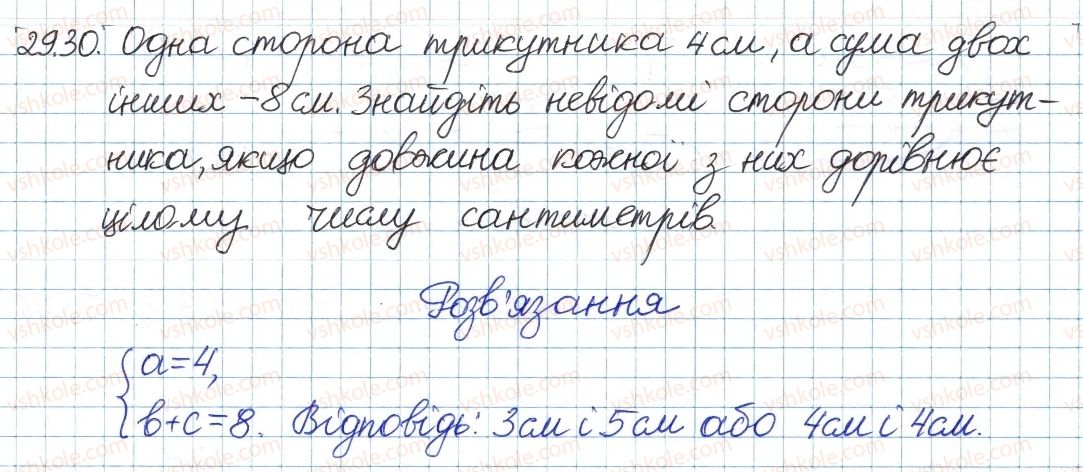 29.30. Одна сторона трикутника 4 см, а сума двох
інших – 8 см. Знайдіть невідомі сторони трикут-
ника, якщо довжина кожної з них дорівнює
цілому числу сантиметрів.
Розв'язання
{ a=4,
b+c=8. Відповідь: 3 см і 5 см або 4 см і 4 см.